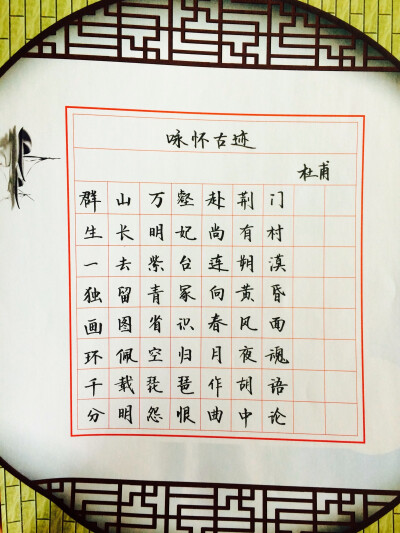 咏怀古迹
杜甫
群山万壑赴荆门
生长明妃尚有村
一去紫台连朔漠
独留青冢向黄昏
画图省识春风面
环佩空归月夜魂
千载琵琶作胡语
分明怨恨曲中论